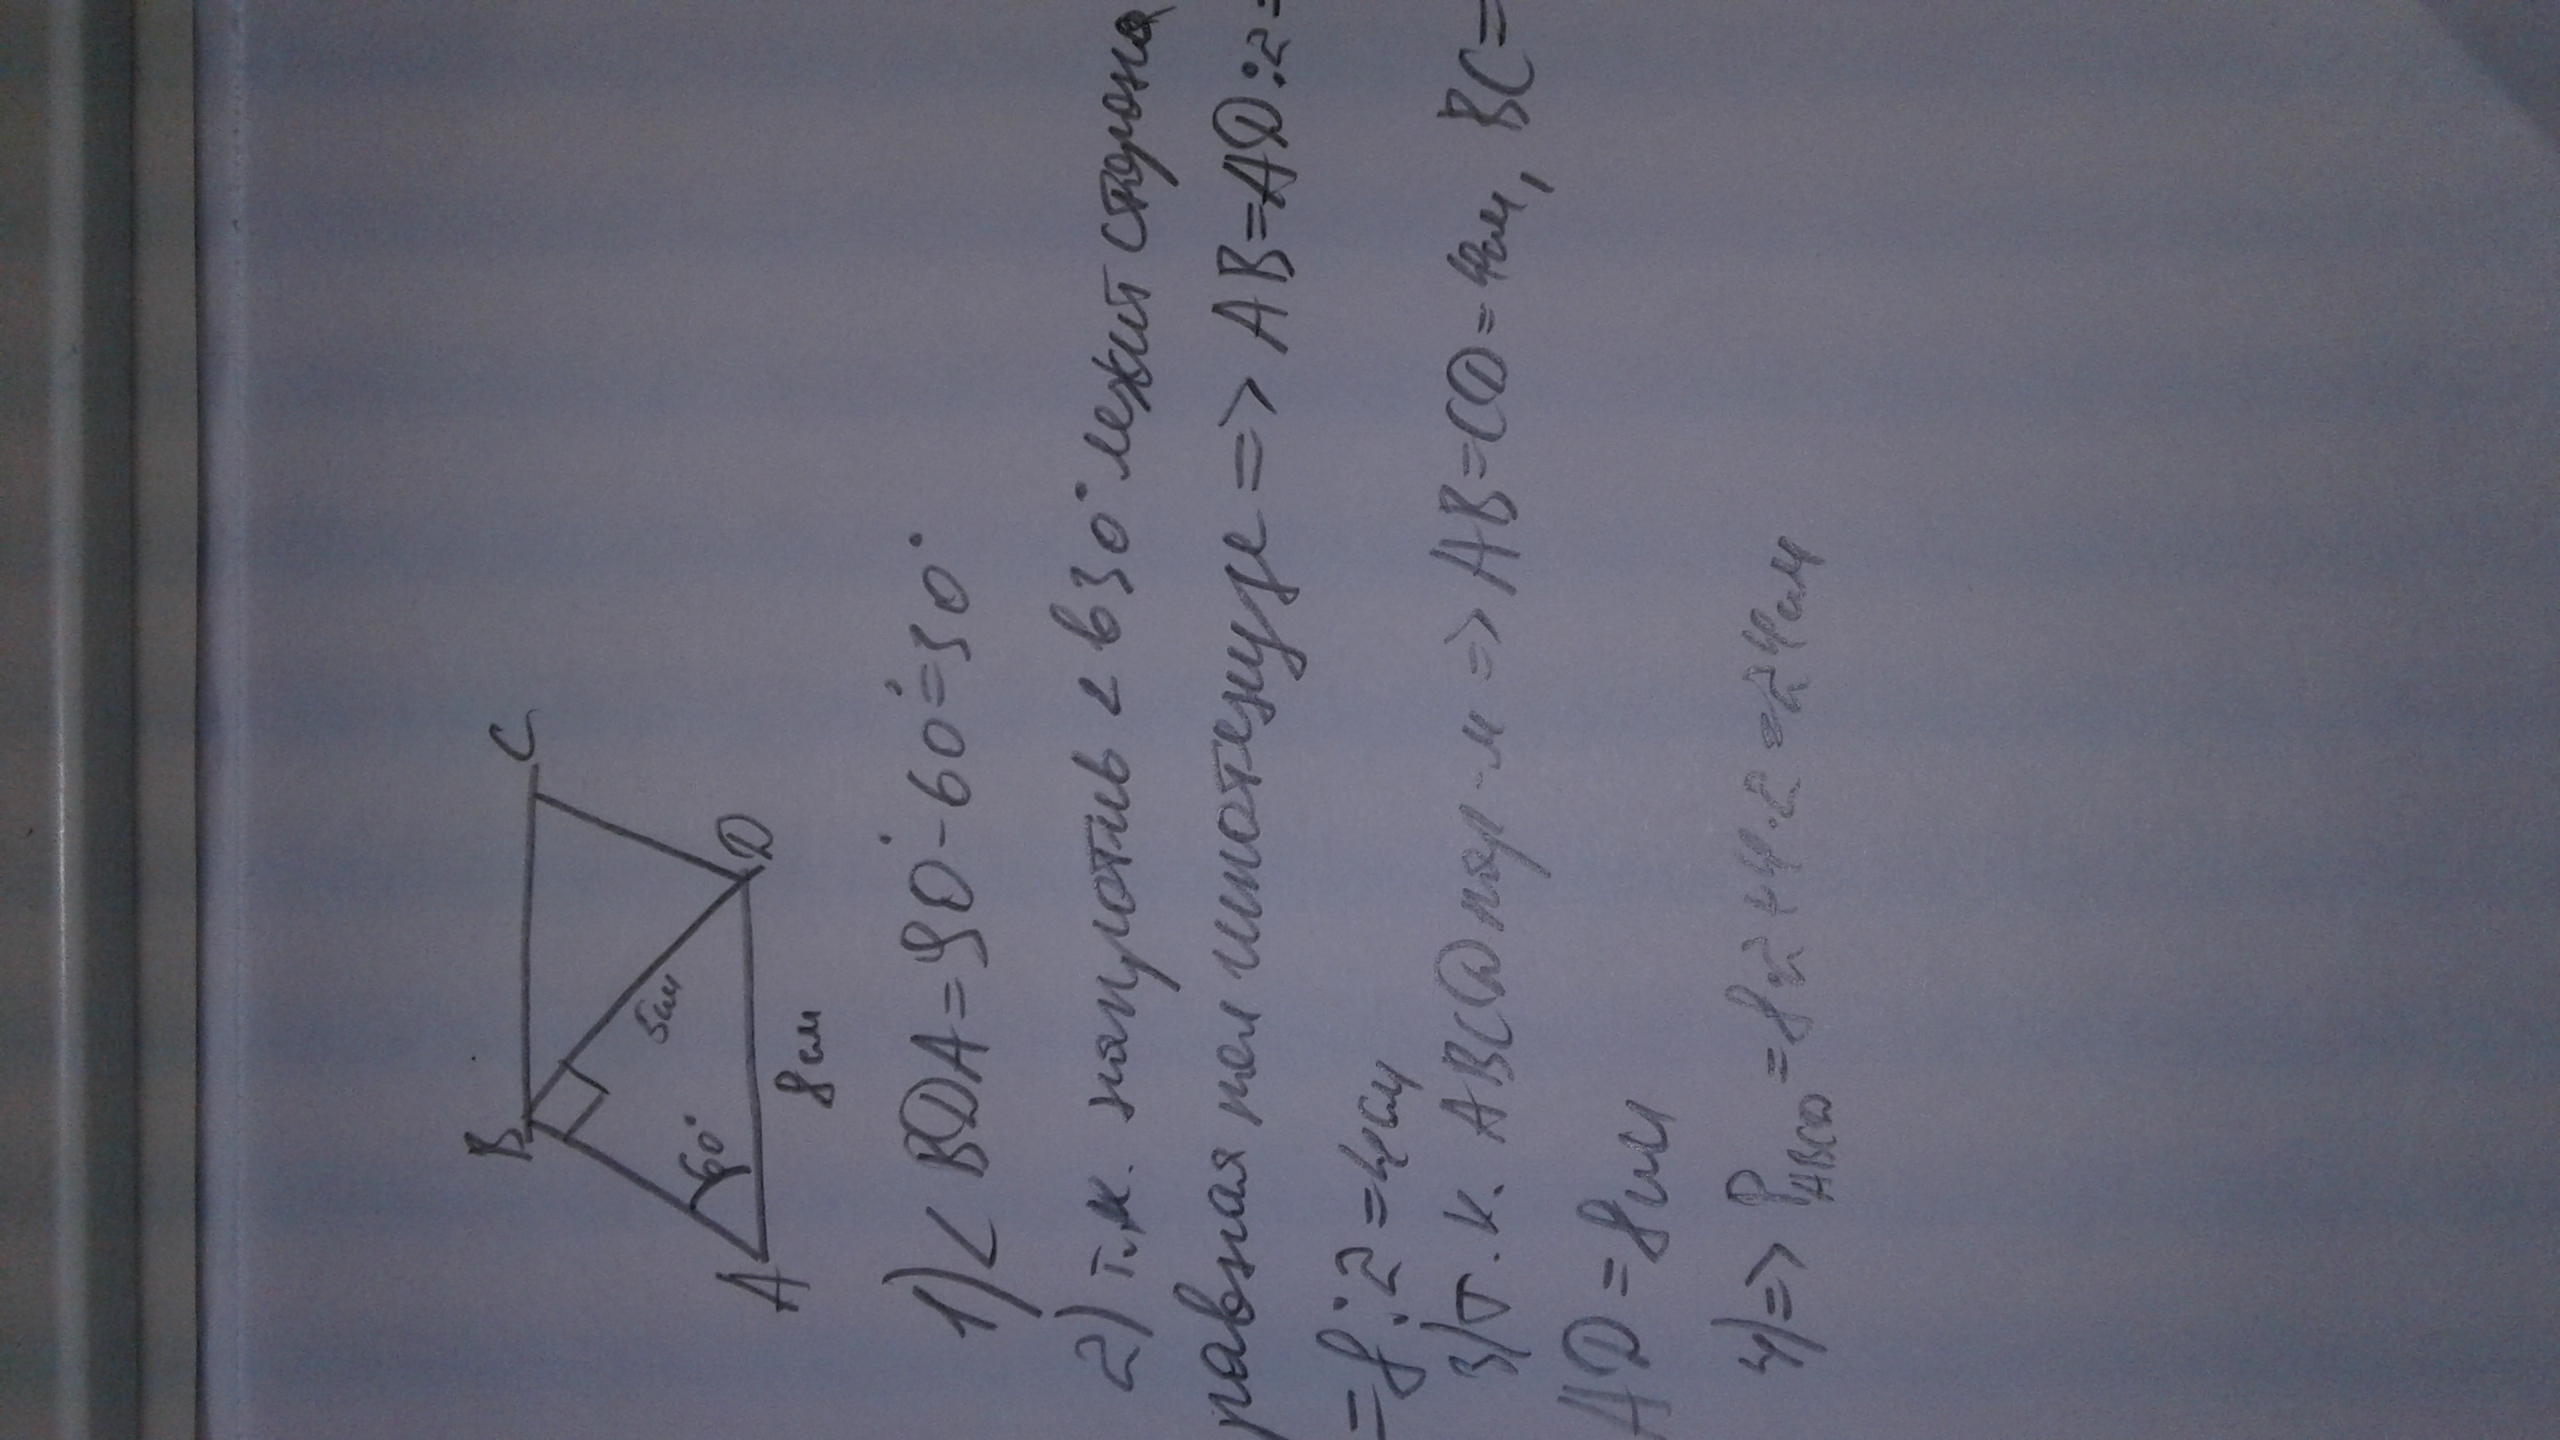 B
C
60°
5см
A
D
8см
1) ∠BDA=90°-60°=30°
2) т.к. напротив ∠ в 30° лежит сторона
равная пол гипотенузе => AB=AD:2=
=8:2=4см
3) т.к. ABCD пар-м => AB=CD=4см, BC=
AD=8см
4) => P ABCD =8·2+4·2=24см